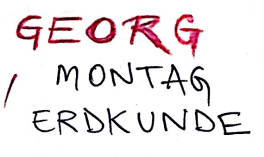 GEORG
MONTAG
ERDKUNDE